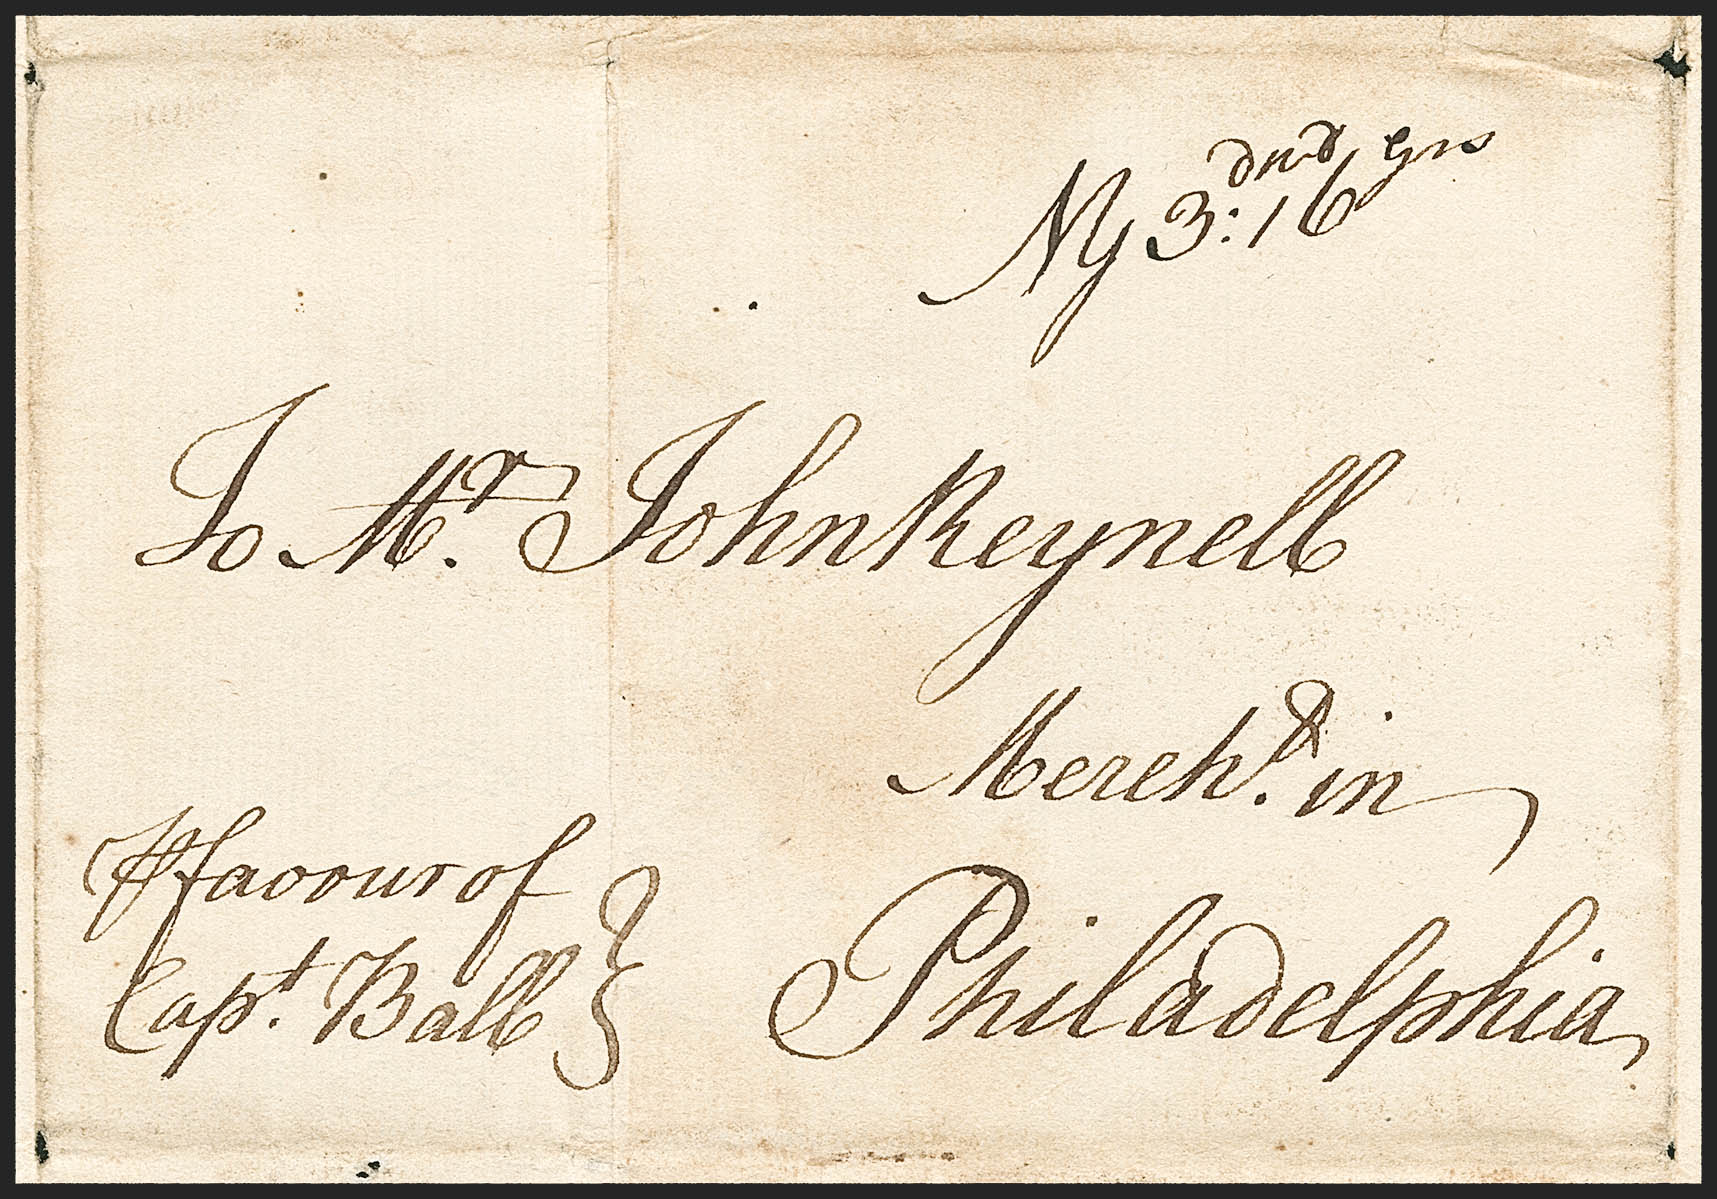 NY 3: 16
dwt grs
To Mr. John Reynell
Mercht. in
Philadelphia
℔ favour of
Capt. Ball